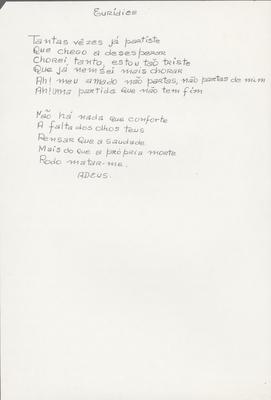 Eurídice
Tantas vêzes já partiste
Que chego a desesperar
Chorei, tanto, estou tão triste
Que já nem sei mais chorar
Ah! meu amado não partas, não partas de mim
Ah! Uma partida que não tem fim
Não há nada que conforte
A falta dos olhos teus
Pensar que a saudade
Mais do que a própria morte
Podo matar-me.
ADEUS.